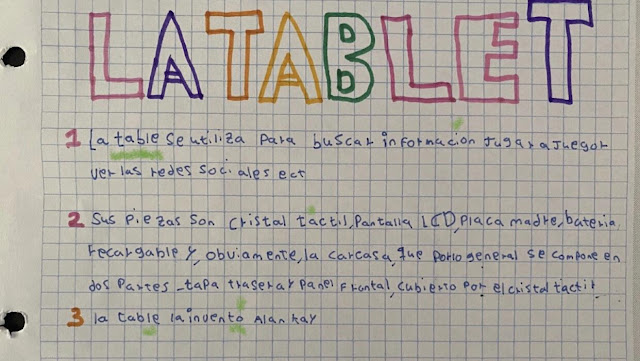 LA TABLET
1 La table se utiliza para buscar informacion jugar a juegor
ver las redes sociales ect
2 Sus piezas son cristal tactil, Pantalla LCD, Placa madre, bateria
recargable y, obviamente, la carcasa, que porlo general se compone en
dos Partes _tapa trasera y Panel Frontal, cubierto por el cristal tactil
3 la table la invento Alan kay